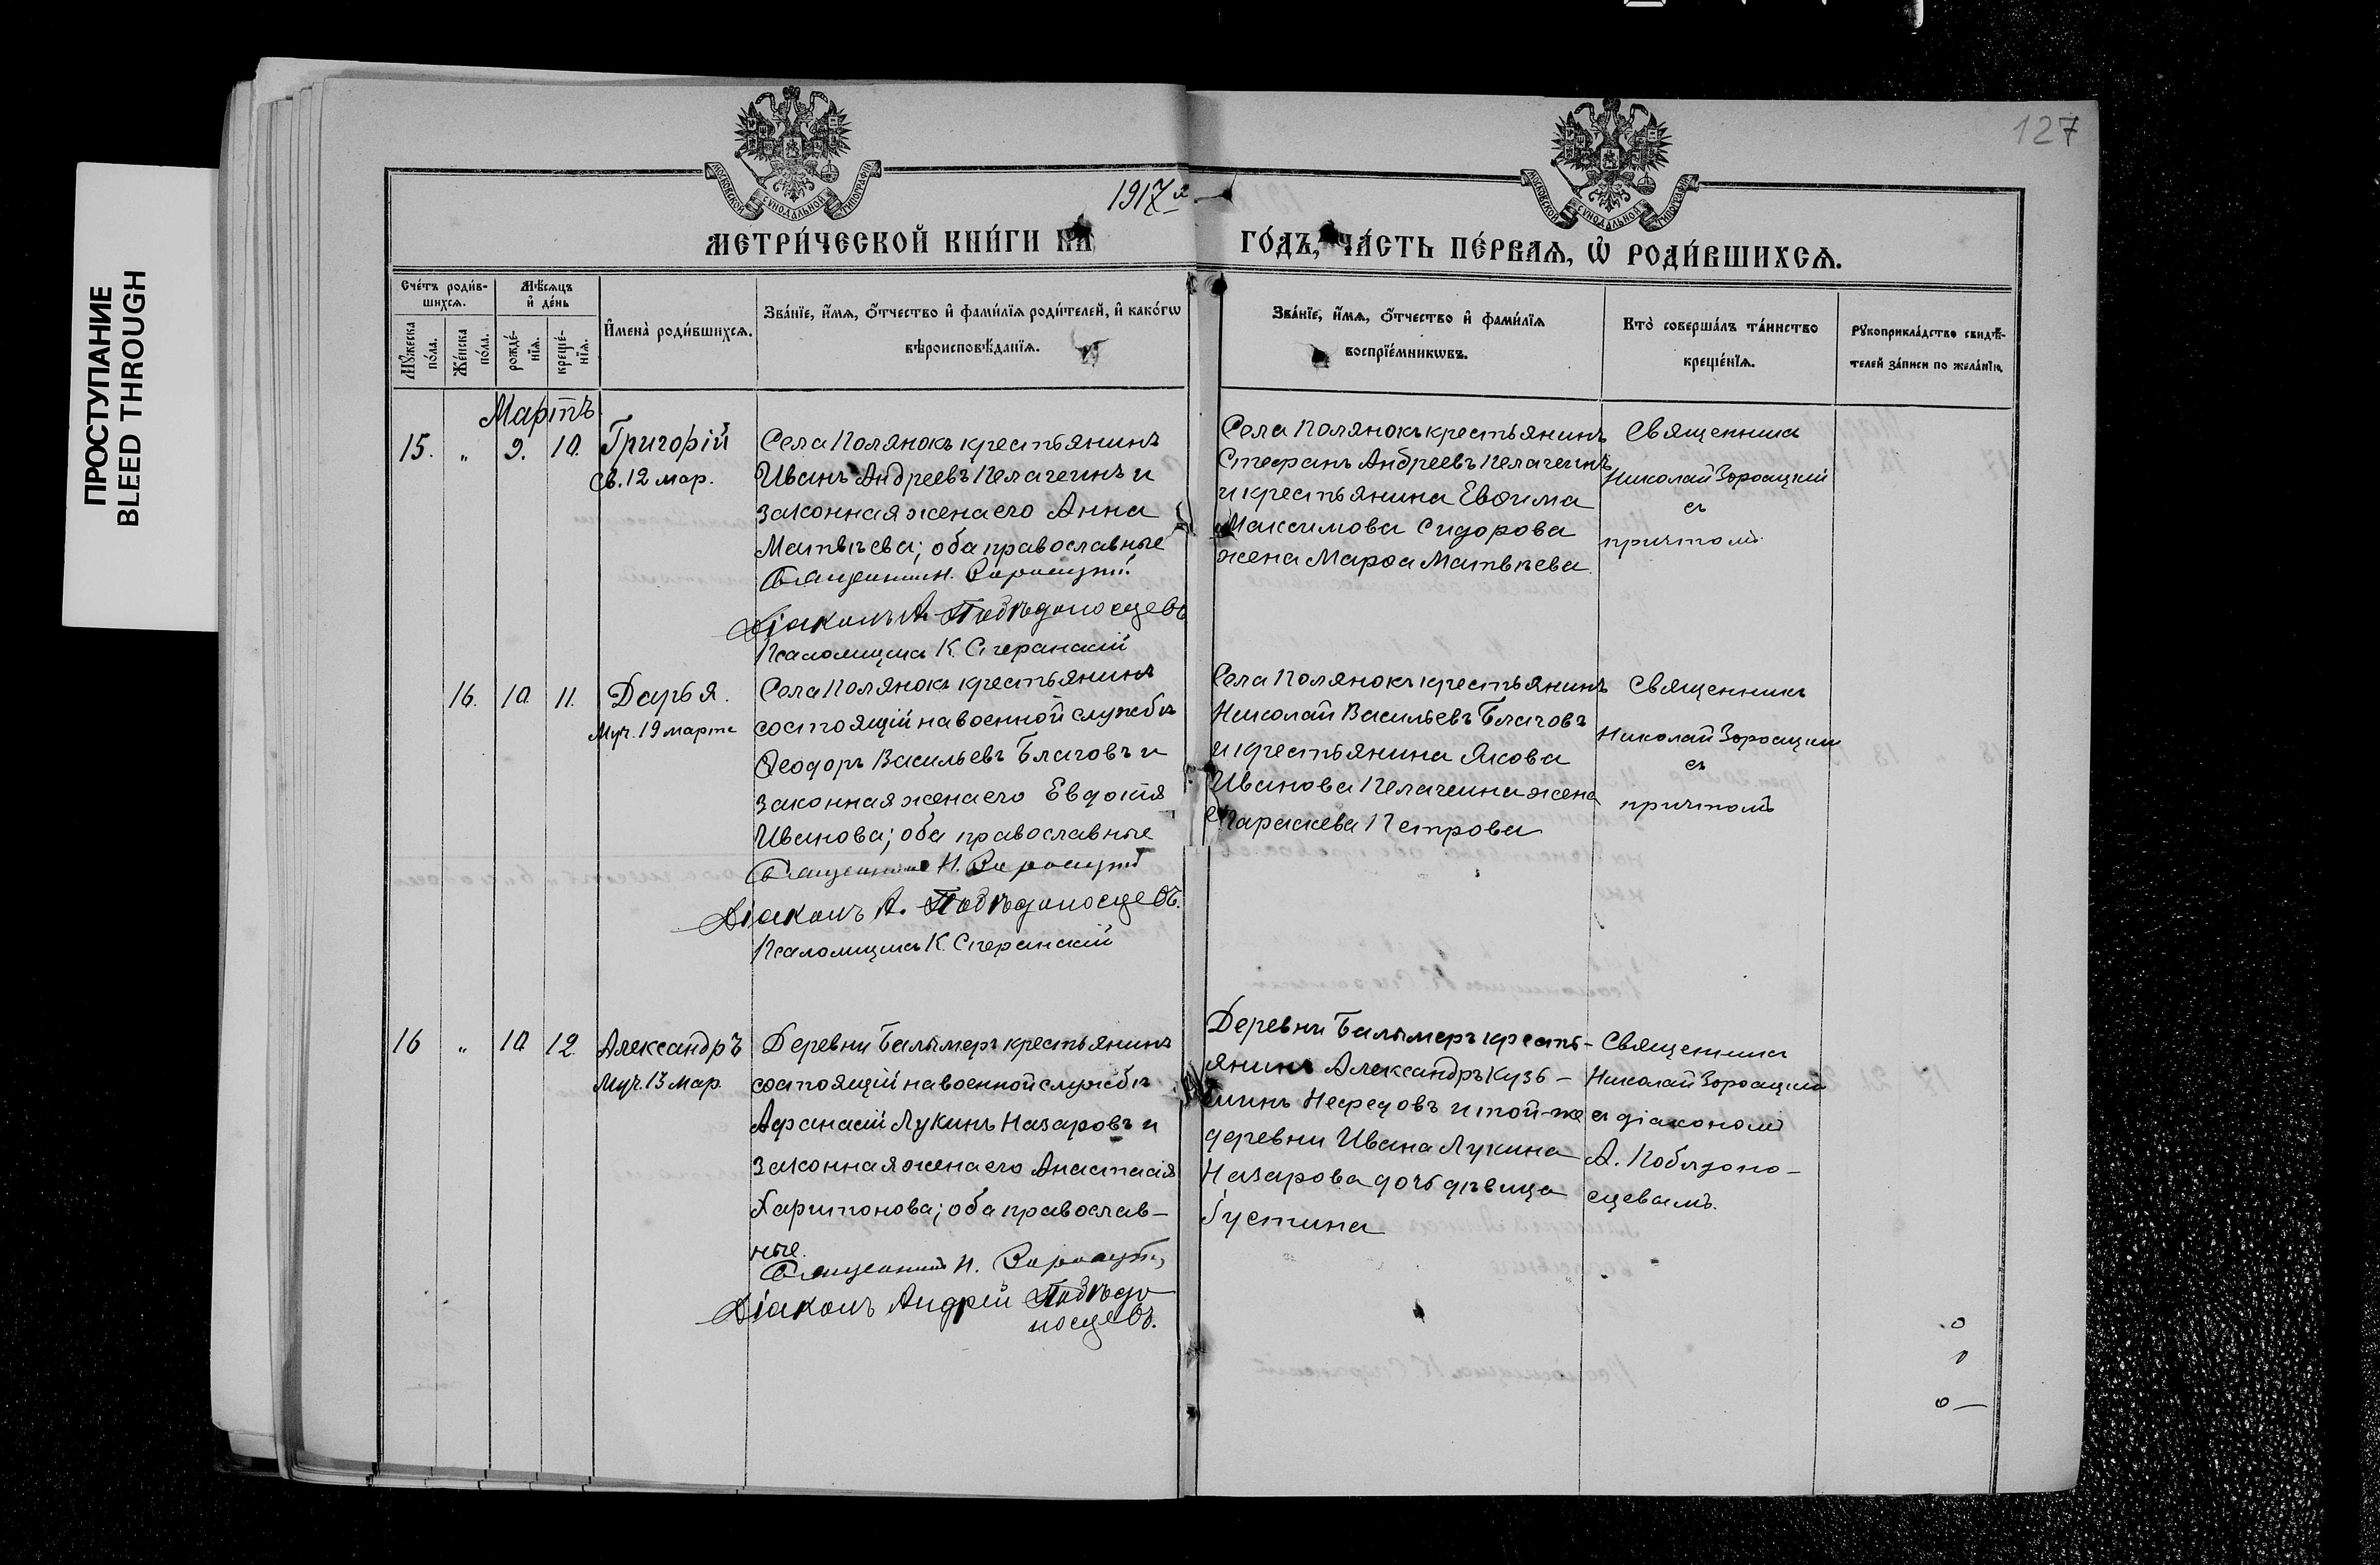 ПРОСТУПАНИЕ
BLEED THROUGH
127
МОСКОВСКОЙ СУНОДАЛЬНОЙ ТИПОГРАФІИ
МОСКОВСКОЙ СУНОДАЛЬНОЙ ТИПОГРАФІИ
1917 г.
МЕТРИ́ЧЕСКОЙ КНИ́ГИ НА
ГО́ДЪ, ЧА́СТЬ ПЕ́РВАѦ, Ѡ҆ РОДИ́ВШИХСѦ.
Сче́тъ роди́в-
шихсѧ.
Мѣ́сѧцъ
и҆ де́нь
Мꙋ́жеска
по́ла.
Же́нска
по́ла.
рожде́-
нїѧ.
креще́-
нїѧ.
И҆мена̀ роди́вшихсѧ.
Зва́нїе, и҆́мѧ, ѻ҆́тчество и҆ фами́лїѧ роди́телей, и҆ како́гѡ
вѣроисповѣ́данїѧ.
Зва́нїе, и҆́мѧ, ѻ҆́тчество и҆ фами́лїѧ
воспрїе́мникѡвъ.
Кто̀ соверша́лъ та́инство
креще́нїѧ.
Рꙋкоприкла́дство свидѣ́-
телей за́писи по жела́нїю.
Мартъ
15. „ 9. 10. Григорій
св. 12 мар.
Села Полянокъ крестьянинъ
Иванъ Андреевъ Пелагеинъ и
законная жена его Анна
Матвѣева; оба православные
Священникъ Н.
Діаконъ А. Побѣдоносцевъ
Псаломщикъ К. Сперанскій
Села Полянокъ крестьянинъ
Стефанъ Андреевъ Пелагеинъ
и крестьянина Евѳима
Максимова Сидорова
жена Марѳа Матвѣева.
Священникъ
Николай
съ
причтомъ
16. 10. 11. Дарья.
Муч. 19 марта
Села Полянокъ крестьянинъ
состоящій на военной службѣ
Ѳеодоръ Васильевъ Благовъ и
законная жена его Евдокія
Иванова; оба православные
Священникъ Н.
Діаконъ А. Побѣдоносцевъ.
Псаломщикъ К. Сперанскій
Села Полянокъ крестьянинъ
Николай Васильевъ Благовъ
и крестьянина Якова
Иванова Пелагеина жена
Параскева Петрова
Священникъ
Николай
съ
причтомъ
16 „ 10 12. Александръ
Муч. 13 мар.
Деревни Балымеръ крестьянинъ
состоящій на военной службѣ
Афанасій Лукинъ Назаровъ и
законная жена его Анастасія
Харитонова; оба православ-
ные.
Священникъ Н.
Діаконъ Андрей Побѣдо
носцевъ.
Деревни Балымеръ кресть-
янинъ Александръ Кузь-
минъ Нефедовъ и той-же
деревни Ивана Лукина
Назарова дочь дѣвица
Густина
Священникъ
Николай
съ діакономъ
А. Побѣдоно-
сцевымъ.